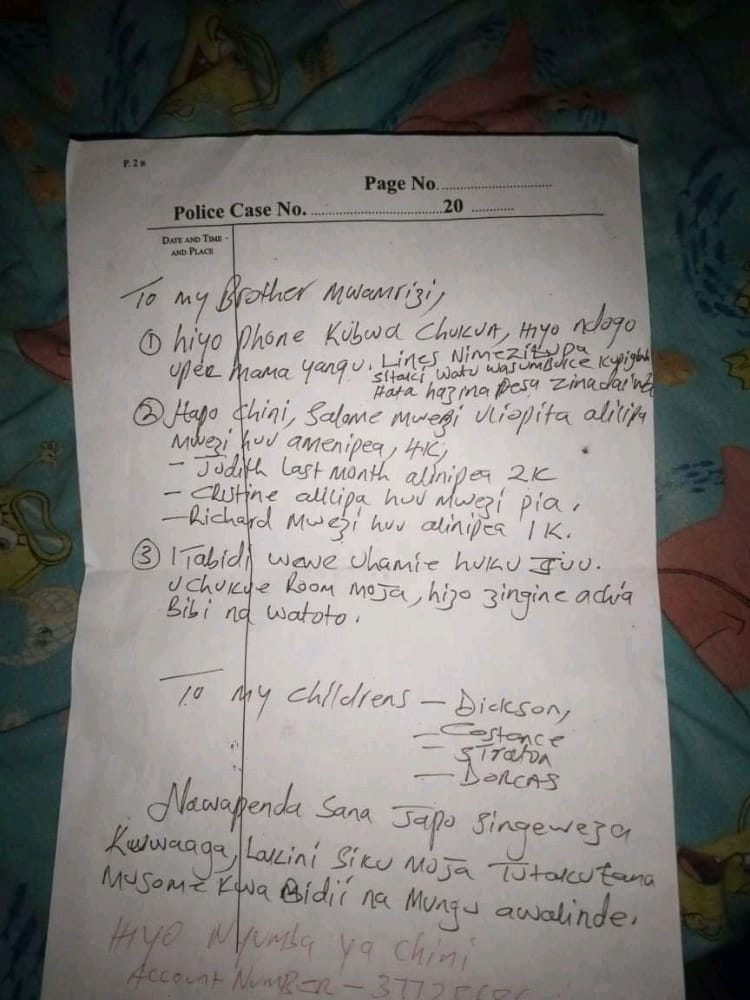 P. 2 B
Page No. ..............................
Police Case No. ....................................20 ............
DATE AND TIME
AND PLACE
To my Brother Mwamrizi,
① hiyo phone Kubwa Chukua, Hiyo ndogo
upee mama yangu. Lines Nimezitupa
sitaki watu wasumbuke kupigia
Hata hazina pesa zinadaiwa
② Hapo chini, Salome mwezi uliopita alilipa
Mwezi huu amenipea, 4K,
- Judith last month alinipea 2K
- Cristine alilipa huu mwezi pia.
- Richard Mwezi huu alinipea 1K.
③ Itabidi wewe uhamie huku juu.
uchukue Room moja, hizo zingine achia
Bibi na watoto.
To my childrens - Dickson,
- Costance
- Straton
- DORCAS
Nawapenda Sana Japo singeweza
Kuwaaga, Lakini siku moja Tutakutana
Musome kwa Bidii na Mungu awalinde.
Hiyo Nyumba ya chini
Account Number -